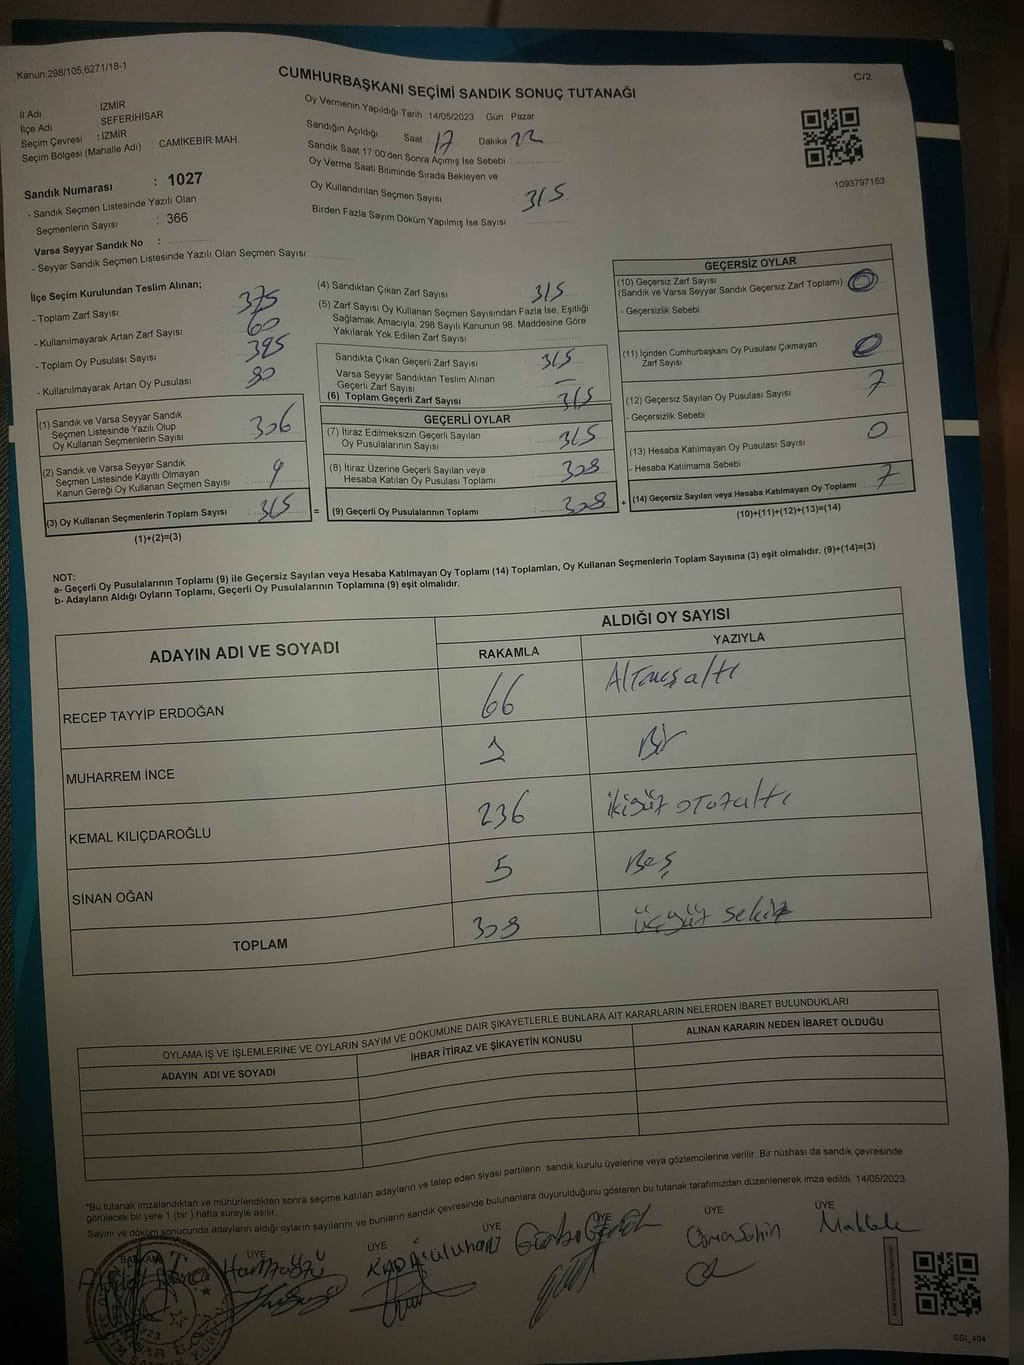 Kanun:298/105,6271/18-1
C/2
CUMHURBAŞKANI SEÇİMİ SANDIK SONUÇ TUTANAĞI
İl Adı İZMİR
İlçe Adı SEFERİHİSAR
Seçim Çevresi : İZMİR
Seçim Bölgesi (Mahalle Adı) CAMİKEBİR MAH
Oy Vermenin Yapıldığı Tarih :14/05/2023 Gün : Pazar
Sandığın Açıldığı Saat : 17 Dakika : 22
Sandık Saat 17:00'den Sonra Açımış İse Sebebi :
Oy Verme Saati Bitiminde Sırada Bekleyen ve
Oy Kullandırılan Seçmen Sayısı : 315
Birden Fazla Sayım Döküm Yapılmış İse Sayısı
1093797153
Sandık Numarası : 1027
- Sandık Seçmen Listesinde Yazılı Olan
Seçmenlerin Sayısı : 366
Varsa Seyyar Sandık No :
- Seyyar Sandık Seçmen Listesinde Yazılı Olan Seçmen Sayısı:
İlçe Seçim Kurulundan Teslim Alınan;
- Toplam Zarf Sayısı : 375
- Kullanılmayarak Artan Zarf Sayısı : 60
- Toplam Oy Pusulası Sayısı : 395
- Kullanılmayarak Artan Oy Pusulası : 80
(1) Sandık ve Varsa Seyyar Sandık
Seçmen Listesinde Yazılı Olup
Oy Kullanan Seçmenlerin Sayısı : 306
(2) Sandık ve Varsa Seyyar Sandık
Seçmen Listesinde Kayıtlı Olmayan
Kanun Gereği Oy Kullanan Seçmen Sayısı : 9
(3) Oy Kullanan Seçmenlerin Toplam Sayısı : 315
(1)+(2)=(3)
(4) Sandıktan Çıkan Zarf Sayısı : 315
(5) Zarf Sayısı Oy Kullanan Seçmen Sayısından Fazla İse, Eşitliği
Sağlamak Amacıyla, 298 Sayılı Kanunun 98. Maddesine Göre
Yakılarak Yok Edilen Zarf Sayısı :
Sandıkta Çıkan Geçerli Zarf Sayısı : 315
Varsa Seyyar Sandıktan Teslim Alınan
Geçerli Zarf Sayısı : —
(6) Toplam Geçerli Zarf Sayısı : 315
GEÇERLİ OYLAR
(7) İtiraz Edilmeksizin Geçerli Sayılan
Oy Pusulalarının Sayısı : 315
(8) İtiraz Üzerine Geçerli Sayılan veya
Hesaba Katılan Oy Pusulası Toplamı : 308
= (9) Geçerli Oy Pusulalarının Toplamı : 308
GEÇERSİZ OYLAR
(10) Geçersiz Zarf Sayısı
(Sandık ve Varsa Seyyar Sandık Geçersiz Zarf Toplamı) : 0
- Geçersizlik Sebebi :
(11) İçinden Cumhurbaşkanı Oy Pusulası Çıkmayan
Zarf Sayısı : 0
(12) Geçersiz Sayılan Oy Pusulası Sayısı : 7
- Geçersizlik Sebebi :
(13) Hesaba Katılmayan Oy Pusulası Sayısı : 0
- Hesaba Katılmama Sebebi :
+ (14) Geçersiz Sayılan veya Hesaba Katılmayan Oy Toplamı : 7
(10)+(11)+(12)+(13)=(14)
NOT:
a- Geçerli Oy Pusulalarının Toplamı (9) ile Geçersiz Sayılan veya Hesaba Katılmayan Oy Toplamı (14) Toplamları, Oy Kullanan Seçmenlerin Toplam Sayısına (3) eşit olmalıdır. (9)+(14)=(3)
b- Adayların Aldığı Oyların Toplamı, Geçerli Oy Pusulalarının Toplamına (9) eşit olmalıdır.
ADAYIN ADI VE SOYADI
ALDIĞI OY SAYISI
RAKAMLA YAZIYLA
RECEP TAYYİP ERDOĞAN 66 Altmışaltı
MUHARREM İNCE 1 Bir
KEMAL KILIÇDAROĞLU 236 ikiyüz otuzaltı
SİNAN OĞAN 5 Beş
TOPLAM 308 üçyüz sekiz
OYLAMA İŞ VE İŞLEMLERİNE VE OYLARIN SAYIM VE DÖKÜMÜNE DAİR ŞİKAYETLERLE BUNLARA AİT KARARLARIN NELERDEN İBARET BULUNDUKLARI
ADAYIN ADI VE SOYADI İHBAR İTİRAZ VE ŞİKAYETİN KONUSU ALINAN KARARIN NEDEN İBARET OLDUĞU
*Bu tutanak imzalandıktan ve mühürlendikten sonra seçime katılan adayların ve talep eden siyasi partilerin sandık kurulu üyelerine veya gözlemcilerine verilir. Bir nüshası da sandık çevresinde
görülecek bir yere 1 (bir ) hafta süreyle asılır.
Sayım ve döküm sonucunda adayların aldığı oyların sayılarını ve bunların sandık çevresinde bulunanlara duyurulduğunu gösteren bu tutanak tarafımızdan düzenlenerek imza edildi. 14/05/2023
BAŞKAN ÜYE ÜYE ÜYE ÜYE ÜYE ÜYE
SSİ_404